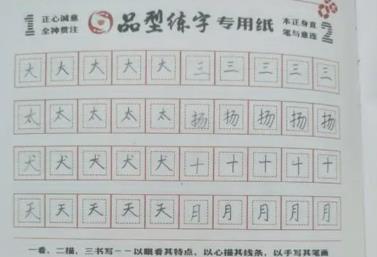 1 正心诚意 品型练字专用纸 本正身直 2
全神贯注 笔与意连
大 大 大 大 大 三 三 三 三 三
太 太 太 太 太 扬 扬 扬 扬 扬
犬 犬 犬 犬 犬 十 十 十 十 十
天 天 天 天 天 月 月 月 月 月
一看、二描、三书写－－以眼看其特点，以心描其线条，以手写其笔画